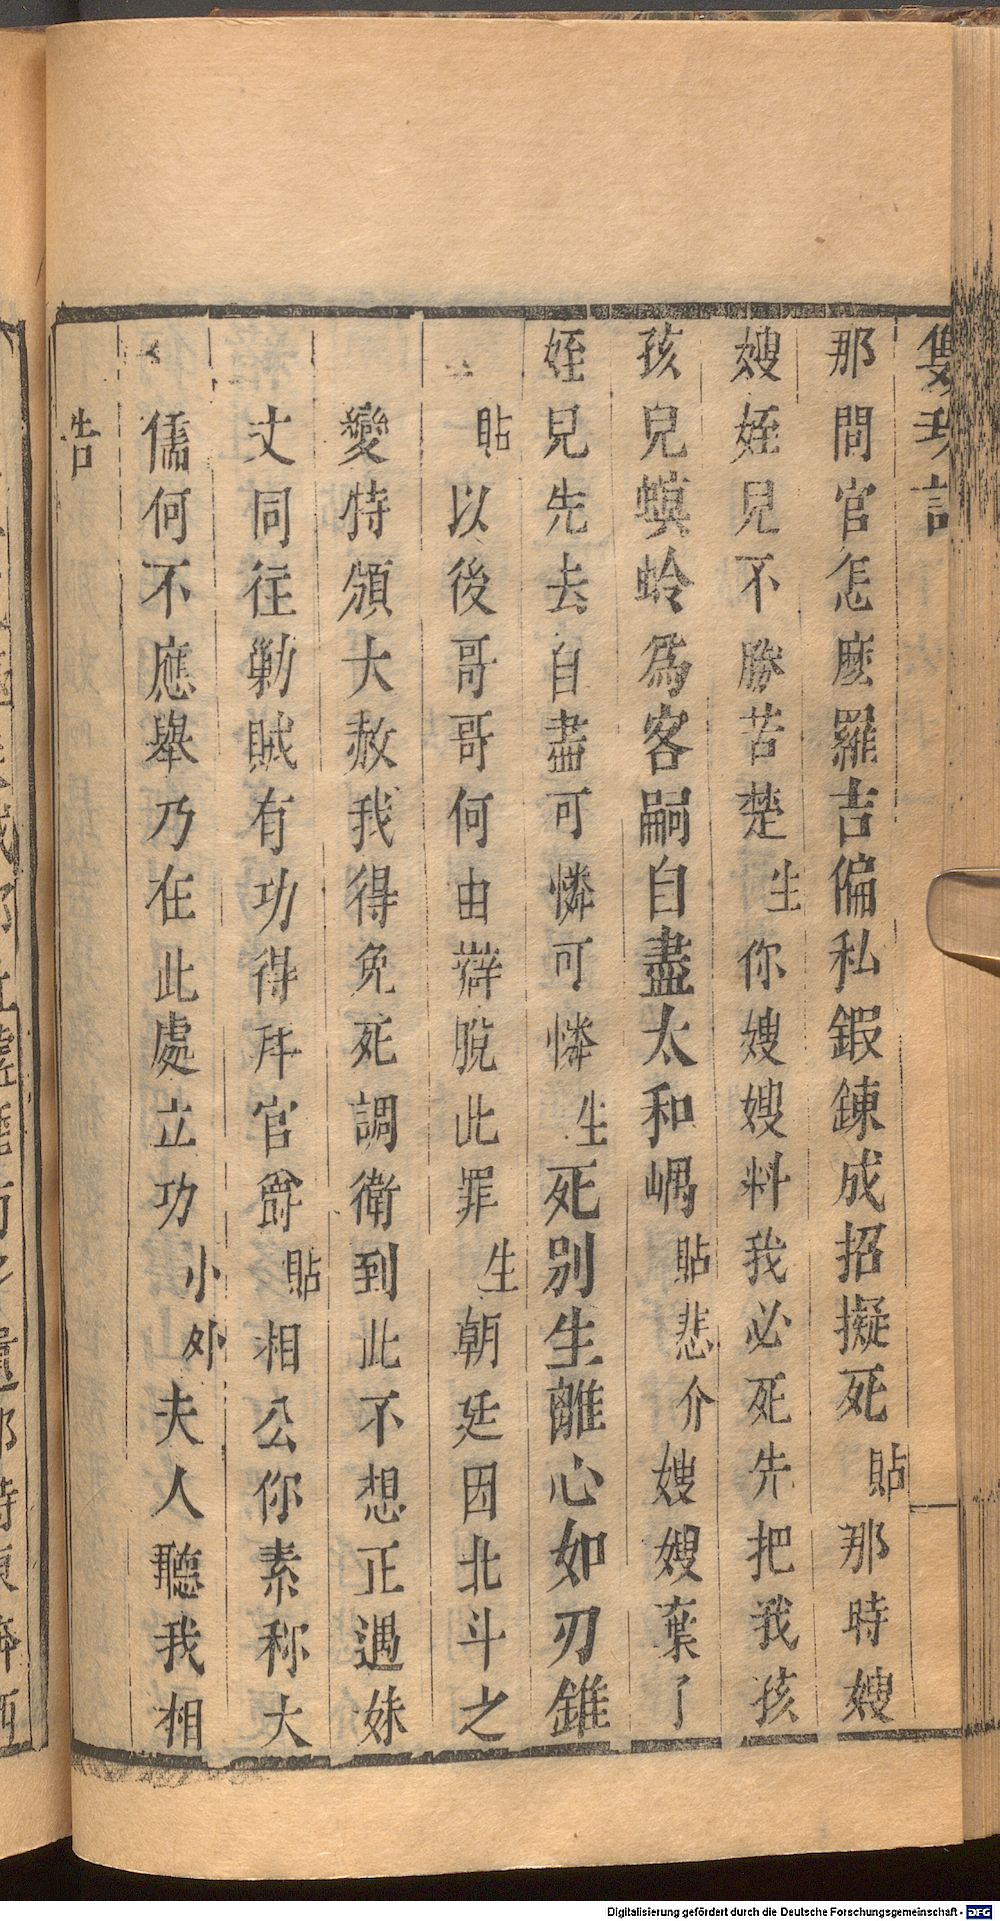 雙珠記
那問官怎麽羅吉偏私鍜鍊成招擬死貼那時嫂
嫂姪兒不勝苦楚生你嫂嫂料我必死先把我孩
孩兒螟蛉爲客嗣自盡太和嵎貼悲介嫂嫂棄了
姪兒先去自盡可憐可憐生死别生離心如刃錐
貼以後哥哥何由辯脫此罪生朝廷因北斗之
變特頒大赦我得免死調衛到此不想正遇妹
丈同往勦賊有功得拜官爵貼相公你素称大
儒何不應舉乃在此處立功小外夫人聽我相
告
Digitalisierung gefördert durch die Deutsche Forschungsgemeinschaft - DFG